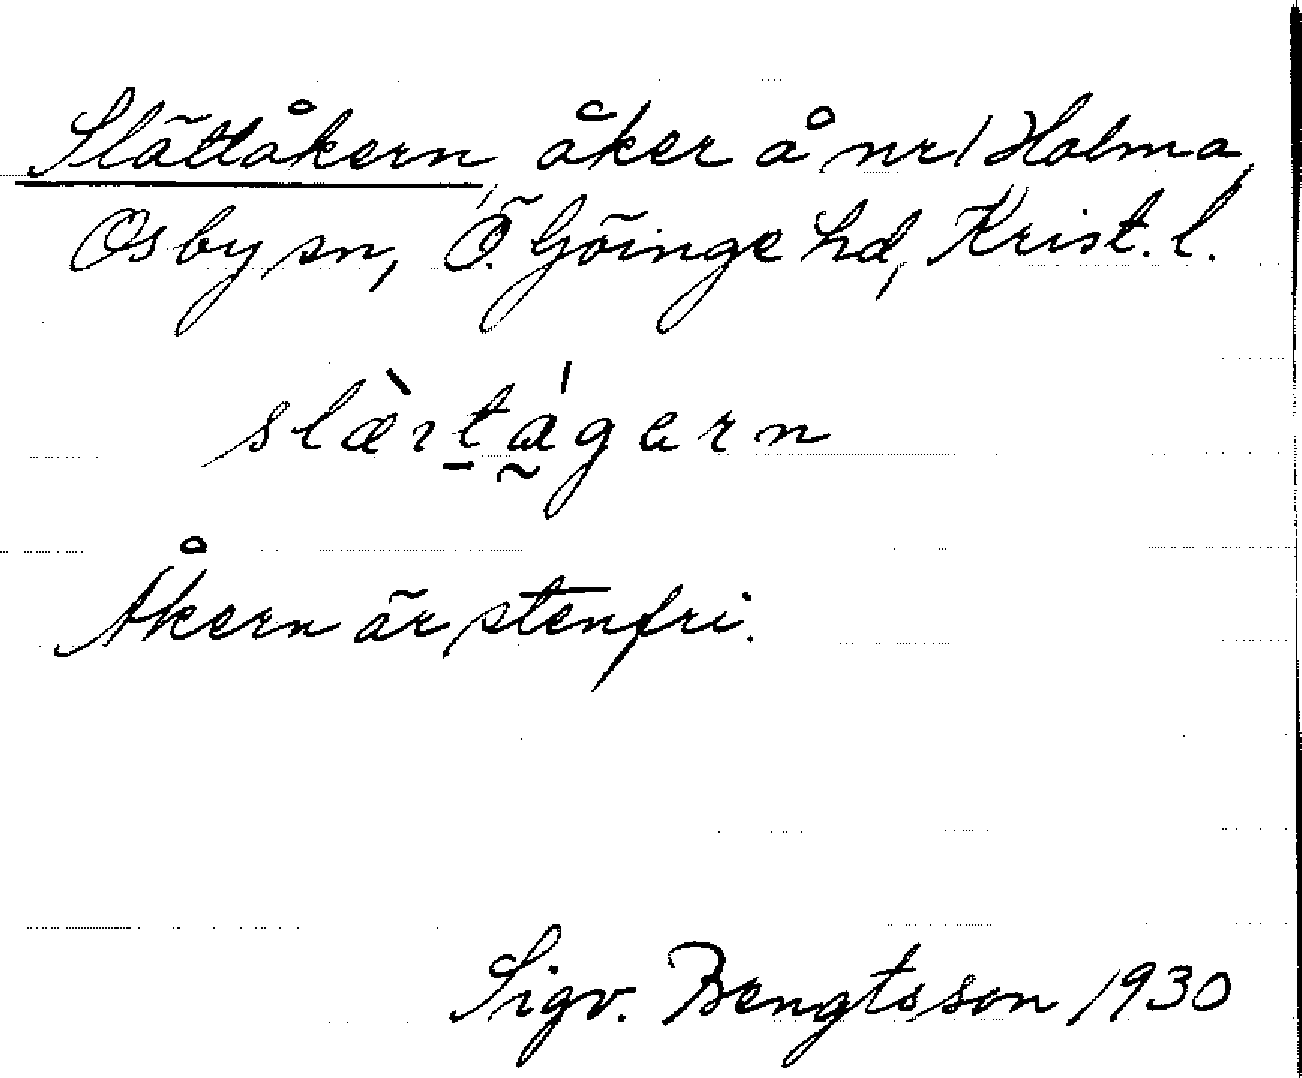 Slättåkern, åker å nr 1 Holma,
Osby sn, Ö. Göinge hd, Krist. l.
slæ̀ıt̠á̰gɐrn
Åkern är stenfri.
Sigv. Bengtsson 1930